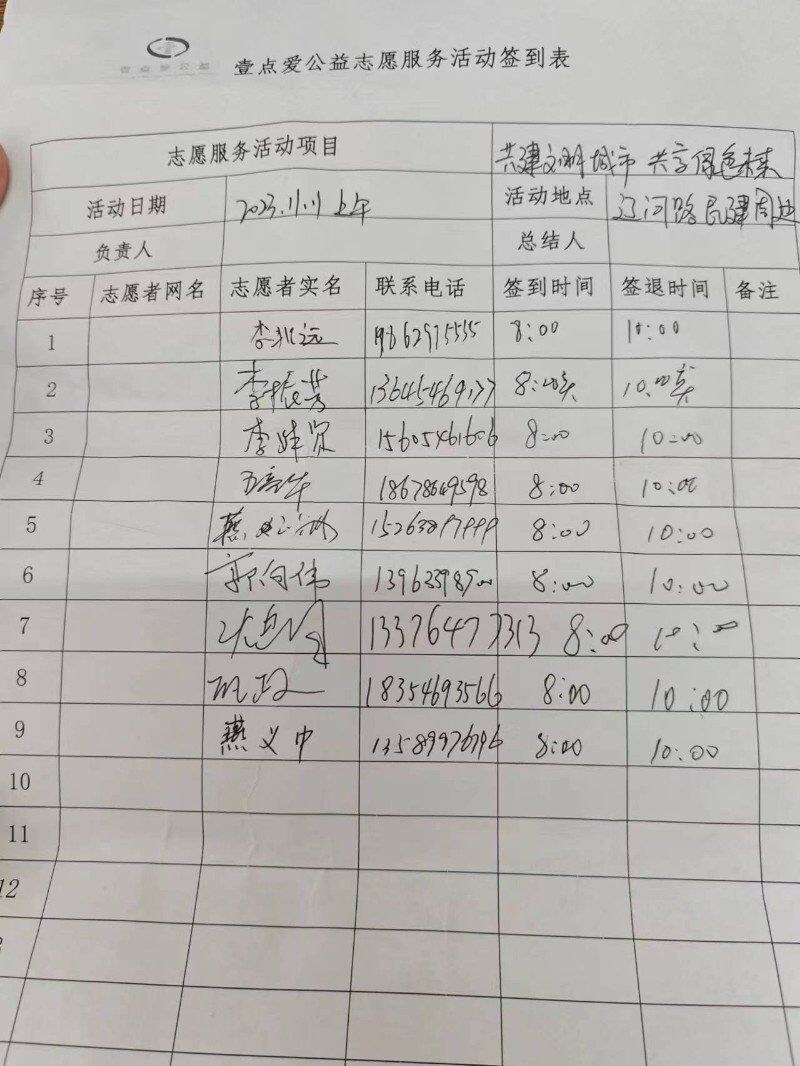 壹点爱公益
壹点爱公益志愿服务活动签到表
志愿服务活动项目 共建文明城市 共享绿色未来
活动日期 2023.11.11 上午 活动地点 辽河路民建周边
负责人 总结人
序号 志愿者网名 志愿者实名 联系电话 签到时间 签退时间 备注
1 李兆远 8:00 10:00
2 李振芳 13645469177
3 李 贤 15605461606 8:00 10:00
4 18678649598 8:00 10:00
5 燕 8:00 10:00
6 郭向伟 8:00 10:00
7 13376477313 8:00 10:00
8 18354693566 8:00 10:00
9 燕义中 13589976796 8:00 10:00
10
11
12